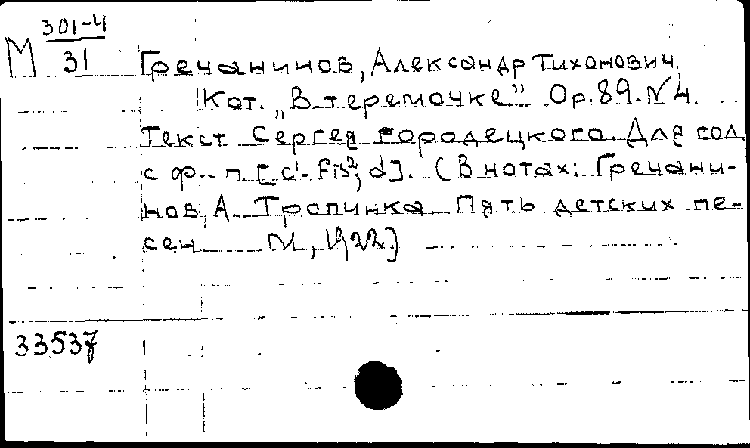 М 301-4
31
Гречанинов, Александр Тихонович.
Кот. „В теремочке" Ор. 89. N 4.
Текст Сергея Городецкого. Для гол.
с ф.-п. [c¹-fis², d]. (В нотах: Гречани-
нов, А. Тропинка. Пять детских пе-
сен М., 1922)
33537